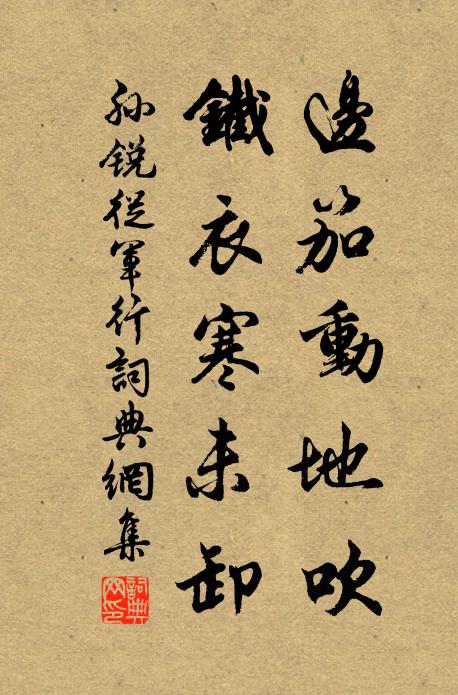 邊笳動地吹
鐵衣寒未卸
孫銳從軍行詞典網集
詞典網印